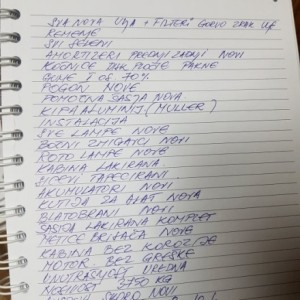 SVA NOVA ULJA + FILTERI GORIVO ZRAK ULJE
REMENJE
SVI SELENI
AMORTIZERI PREDNJI ZADNJI NOVI
KOČNICE DISK PLOČE PAKNE
GUME I OS 70%
POGONI NOVE
POMOĆNA ŠASIJA NOVA
KIPA ALUMINIJ (MULLER)
INSTALACIJA
SVE LAMPE NOVE
BOČNI ŽMIGAVCI NOVI
ROTO LAMPE NOVE
KABINA LAKIRANA
SICEVI TAPECIRANI
AKUMULATORI NOVI
KUTIJA ZA ALAT NOVA
BLATOBRANI NOVI
ŠASIJA LAKIRANA KOMPLET
METLICE BRISAČA NOVE
KABINA BEZ KOROZIJE
MOTOR BEZ GREŠKE
UNUTRAŠNJOST UREDNA
NOSIVOST KG
SKORO NOVI